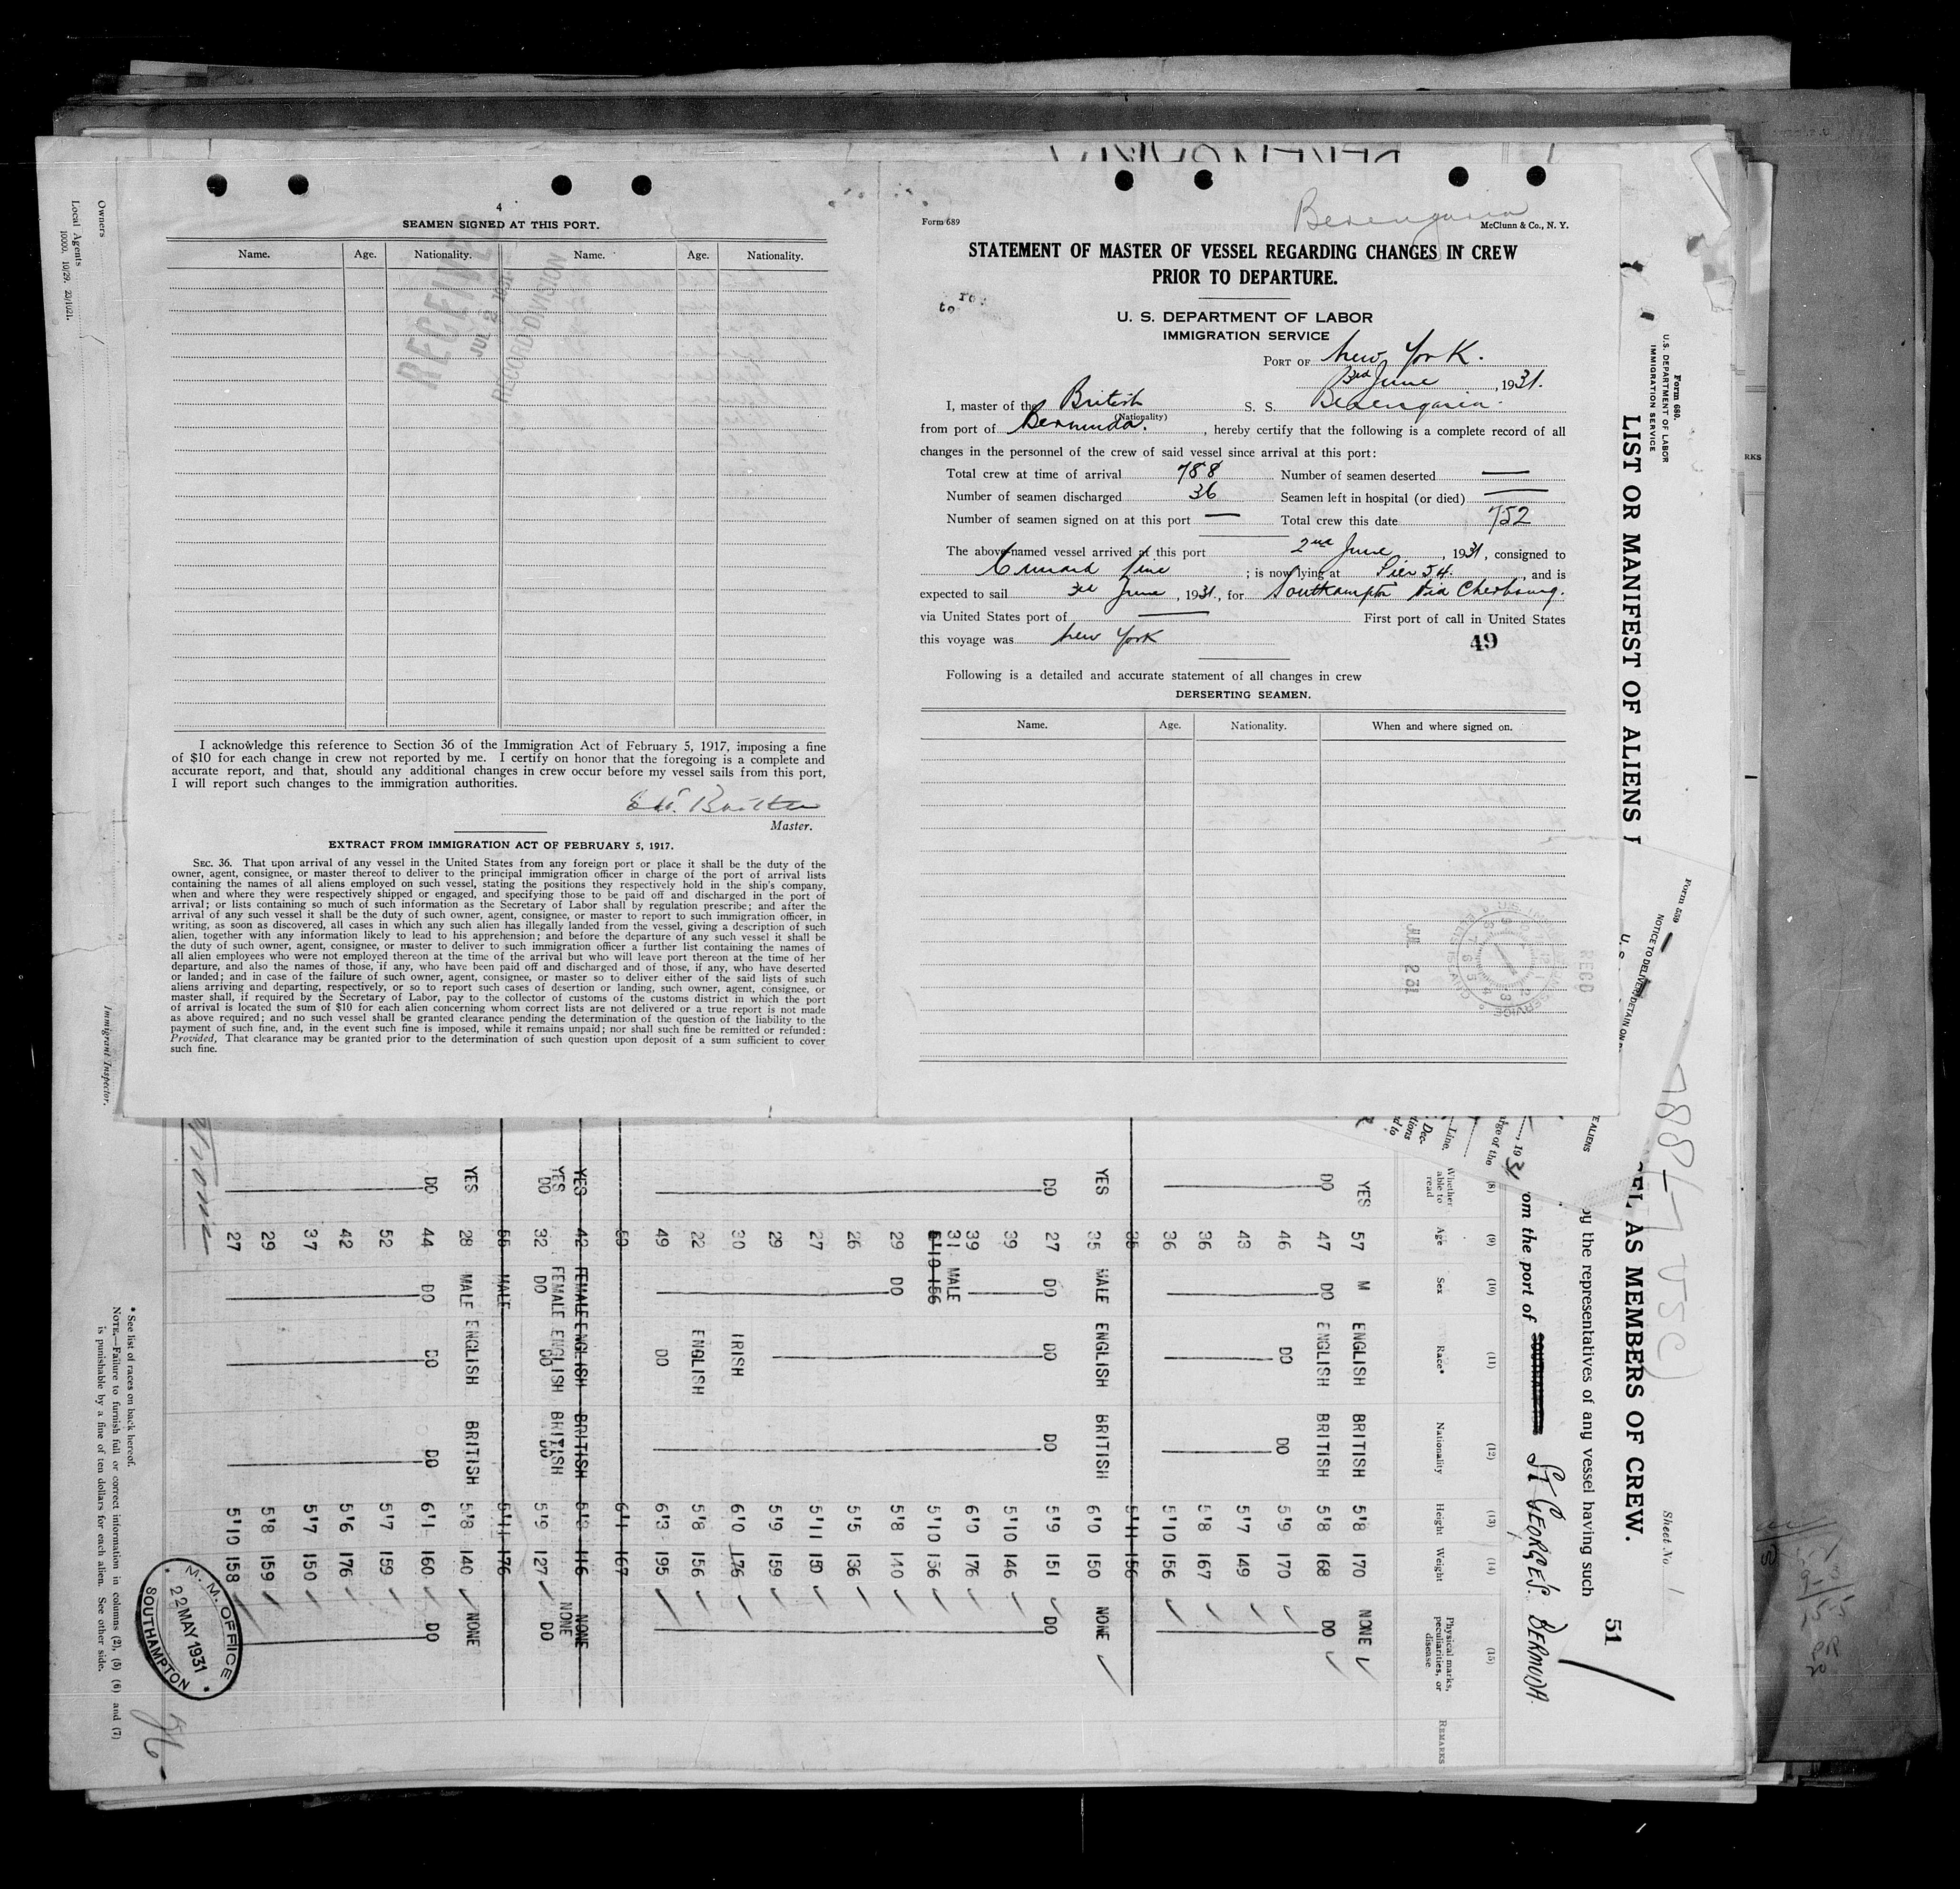 4
SEAMEN SIGNED AT THIS PORT.
Name. Age. Nationality. Name. Age. Nationality.
RECEIVED
JUL 2 1931
RECORD DIVISION
I acknowledge this reference to Section 36 of the Immigration Act of February 5, 1917, imposing a fine
of $10 for each change in crew not reported by me. I certify on honor that the foregoing is a complete and
accurate report, and that, should any additional changes in crew occur before my vessel sails from this port,
I will report such changes to the immigration authorities.
Master.
EXTRACT FROM IMMIGRATION ACT OF FEBRUARY 5, 1917.
SEC. 36. That upon arrival of any vessel in the United States from any foreign port or place it shall be the duty of the
owner, agent, consignee, or master thereof to deliver to the principal immigration officer in charge of the port of arrival lists
containing the names of all aliens employed on such vessel, stating the positions they respectively hold in the ship's company,
when and where they were respectively shipped or engaged, and specifying those to be paid off and discharged in the port of
arrival; or lists containing so much of such information as the Secretary of Labor shall by regulation prescribe; and after the
arrival of any such vessel it shall be the duty of such owner, agent, consignee, or master to report to such immigration officer, in
writing, as soon as discovered, all cases in which any such alien has illegally landed from the vessel, giving a description of such
alien, together with any information likely to lead to his apprehension; and before the departure of any such vessel it shall be
the duty of such owner, agent, consignee, or master to deliver to such immigration officer a further list containing the names of
all alien employees who were not employed thereon at the time of the arrival but who will leave port thereon at the time of her
departure, and also the names of those, if any, who have been paid off and discharged and of those, if any, who have deserted
or landed; and in case of the failure of such owner, agent, consignee, or master so to deliver either of the said lists of such
aliens arriving and departing, respectively, or so to report such cases of desertion or landing, such owner, agent, consignee, or
master shall, if required by the Secretary of Labor, pay to the collector of customs of the customs district in which the port
of arrival is located the sum of $10 for each alien concerning whom correct lists are not delivered or a true report is not made
as above required; and no such vessel shall be granted clearance pending the determination of the question of the liability to the
payment of such fine, and, in the event such fine is imposed, while it remains unpaid; nor shall such fine be remitted or refunded:
Provided, That clearance may be granted prior to the determination of such question upon deposit of a sum sufficient to cover
such fine.
Berengaria
Form 689 McClunn & Co., N. Y.
STATEMENT OF MASTER OF VESSEL REGARDING CHANGES IN CREW
PRIOR TO DEPARTURE.
U. S. DEPARTMENT OF LABOR
IMMIGRATION SERVICE
PORT OF New York.
3rd June, 1931.
I, master of the British S. S. Berengaria.
(Nationality)
from port of Bermuda., hereby certify that the following is a complete record of all
changes in the personnel of the crew of said vessel since arrival at this port:
Total crew at time of arrival 788 Number of seamen deserted —
Number of seamen discharged 36 Seamen left in hospital (or died) —
Number of seamen signed on at this port — Total crew this date 752
The above-named vessel arrived at this port 2nd June, 1931, consigned to
Cunard Line; is now lying at Pier 54., and is
expected to sail 3rd June, 1931., for Southampton Via Cherbourg.
via United States port of — First port of call in United States
this voyage was New York
49
Following is a detailed and accurate statement of all changes in crew
DERSERTING SEAMEN.
Name. Age. Nationality. When and where signed on.
REC'D
JUL 2 31
Form 680.
U.S. DEPARTMENT OF LABOR
IMMIGRATION SERVICE
LIST OR MANIFEST OF ALIENS
AS MEMBERS OF CREW.
Sheet No. 1
51
Form 559
NOTICE TO DELIVER, DETAIN ON
by the representatives of any vessel having such
from the port of ST GEORGES. BERMUDA.
(8) (9) (10) (11) (12) (13) (14) (15)
Whether able to read Age Sex Race* Nationality Height Weight Physical marks, peculiarities, or disease REMARKS
YES 57 M ENGLISH BRITISH 5'8 170 NONE
DO 47 DO ENGLISH BRITISH 5'8 168 DO
46 DO DO 5'9 170
43 5'7 149
36 5'8 167
36 5'10 156
35 5'11 156
YES 35 MALE ENGLISH BRITISH 6'0 150 NONE
DO 27 DO DO DO 5'9 151 DO
39 5'10 146
39 6'0 176
31 MALE 5'10 156
5'10 156
29 DO 5'8 140
26 5'5 136
27 5'11 159
29 5'9 159
30 IRISH 6'0 176
22 ENGLISH 5'8 156
49 DO 6'3 195
59 6'1 167
YES 42 FEMALE ENGLISH BRITISH 5'3 116 NONE
YES FEMALE ENGLISH BRITISH NONE
DO 32 DO DO DO 5'9 127 DO
55 MALE 5'11 176
YES 28 MALE ENGLISH BRITISH 5'8 140 NONE
DO 44 DO DO DO 6'1 160 DO
52 5'7 159
42 5'6 176
37 5'7 150
29 5'8 159
27 5'10 158
M. M. OFFICE
22 MAY 1931
SOUTHAMPTON
* See list of races on back hereof.
NOTE.—Failure to furnish full or correct information in columns (2), (5) (6) and (7)
is punishable by a fine of ten dollars for each alien. See other side.
Immigrant Inspector.
Owners
Local Agents
10000. 10/29. 23/1021.